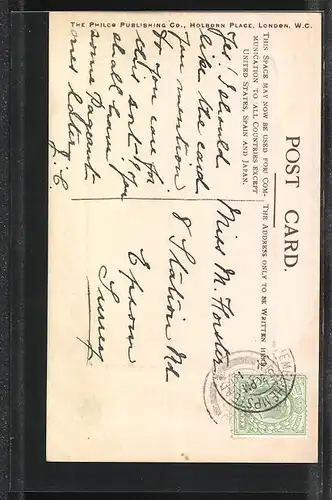 THE PHILCO PUBLISHING CO., HOLBORN PLACE, LONDON, W.C.
POST CARD.
THIS SPACE MAY NOW BE USED FOR COM-
MUNICATION TO ALL COUNTRIES EXCEPT
UNITED STATES, SPAIN AND JAPAN.
THE ADDRESS ONLY TO BE WRITTEN HERE.
Yes I should
like the card
you mention
do you care for
this sort? you
shall have
some
next letter
Miss M.
8 Station Rd
Epsom
Surrey